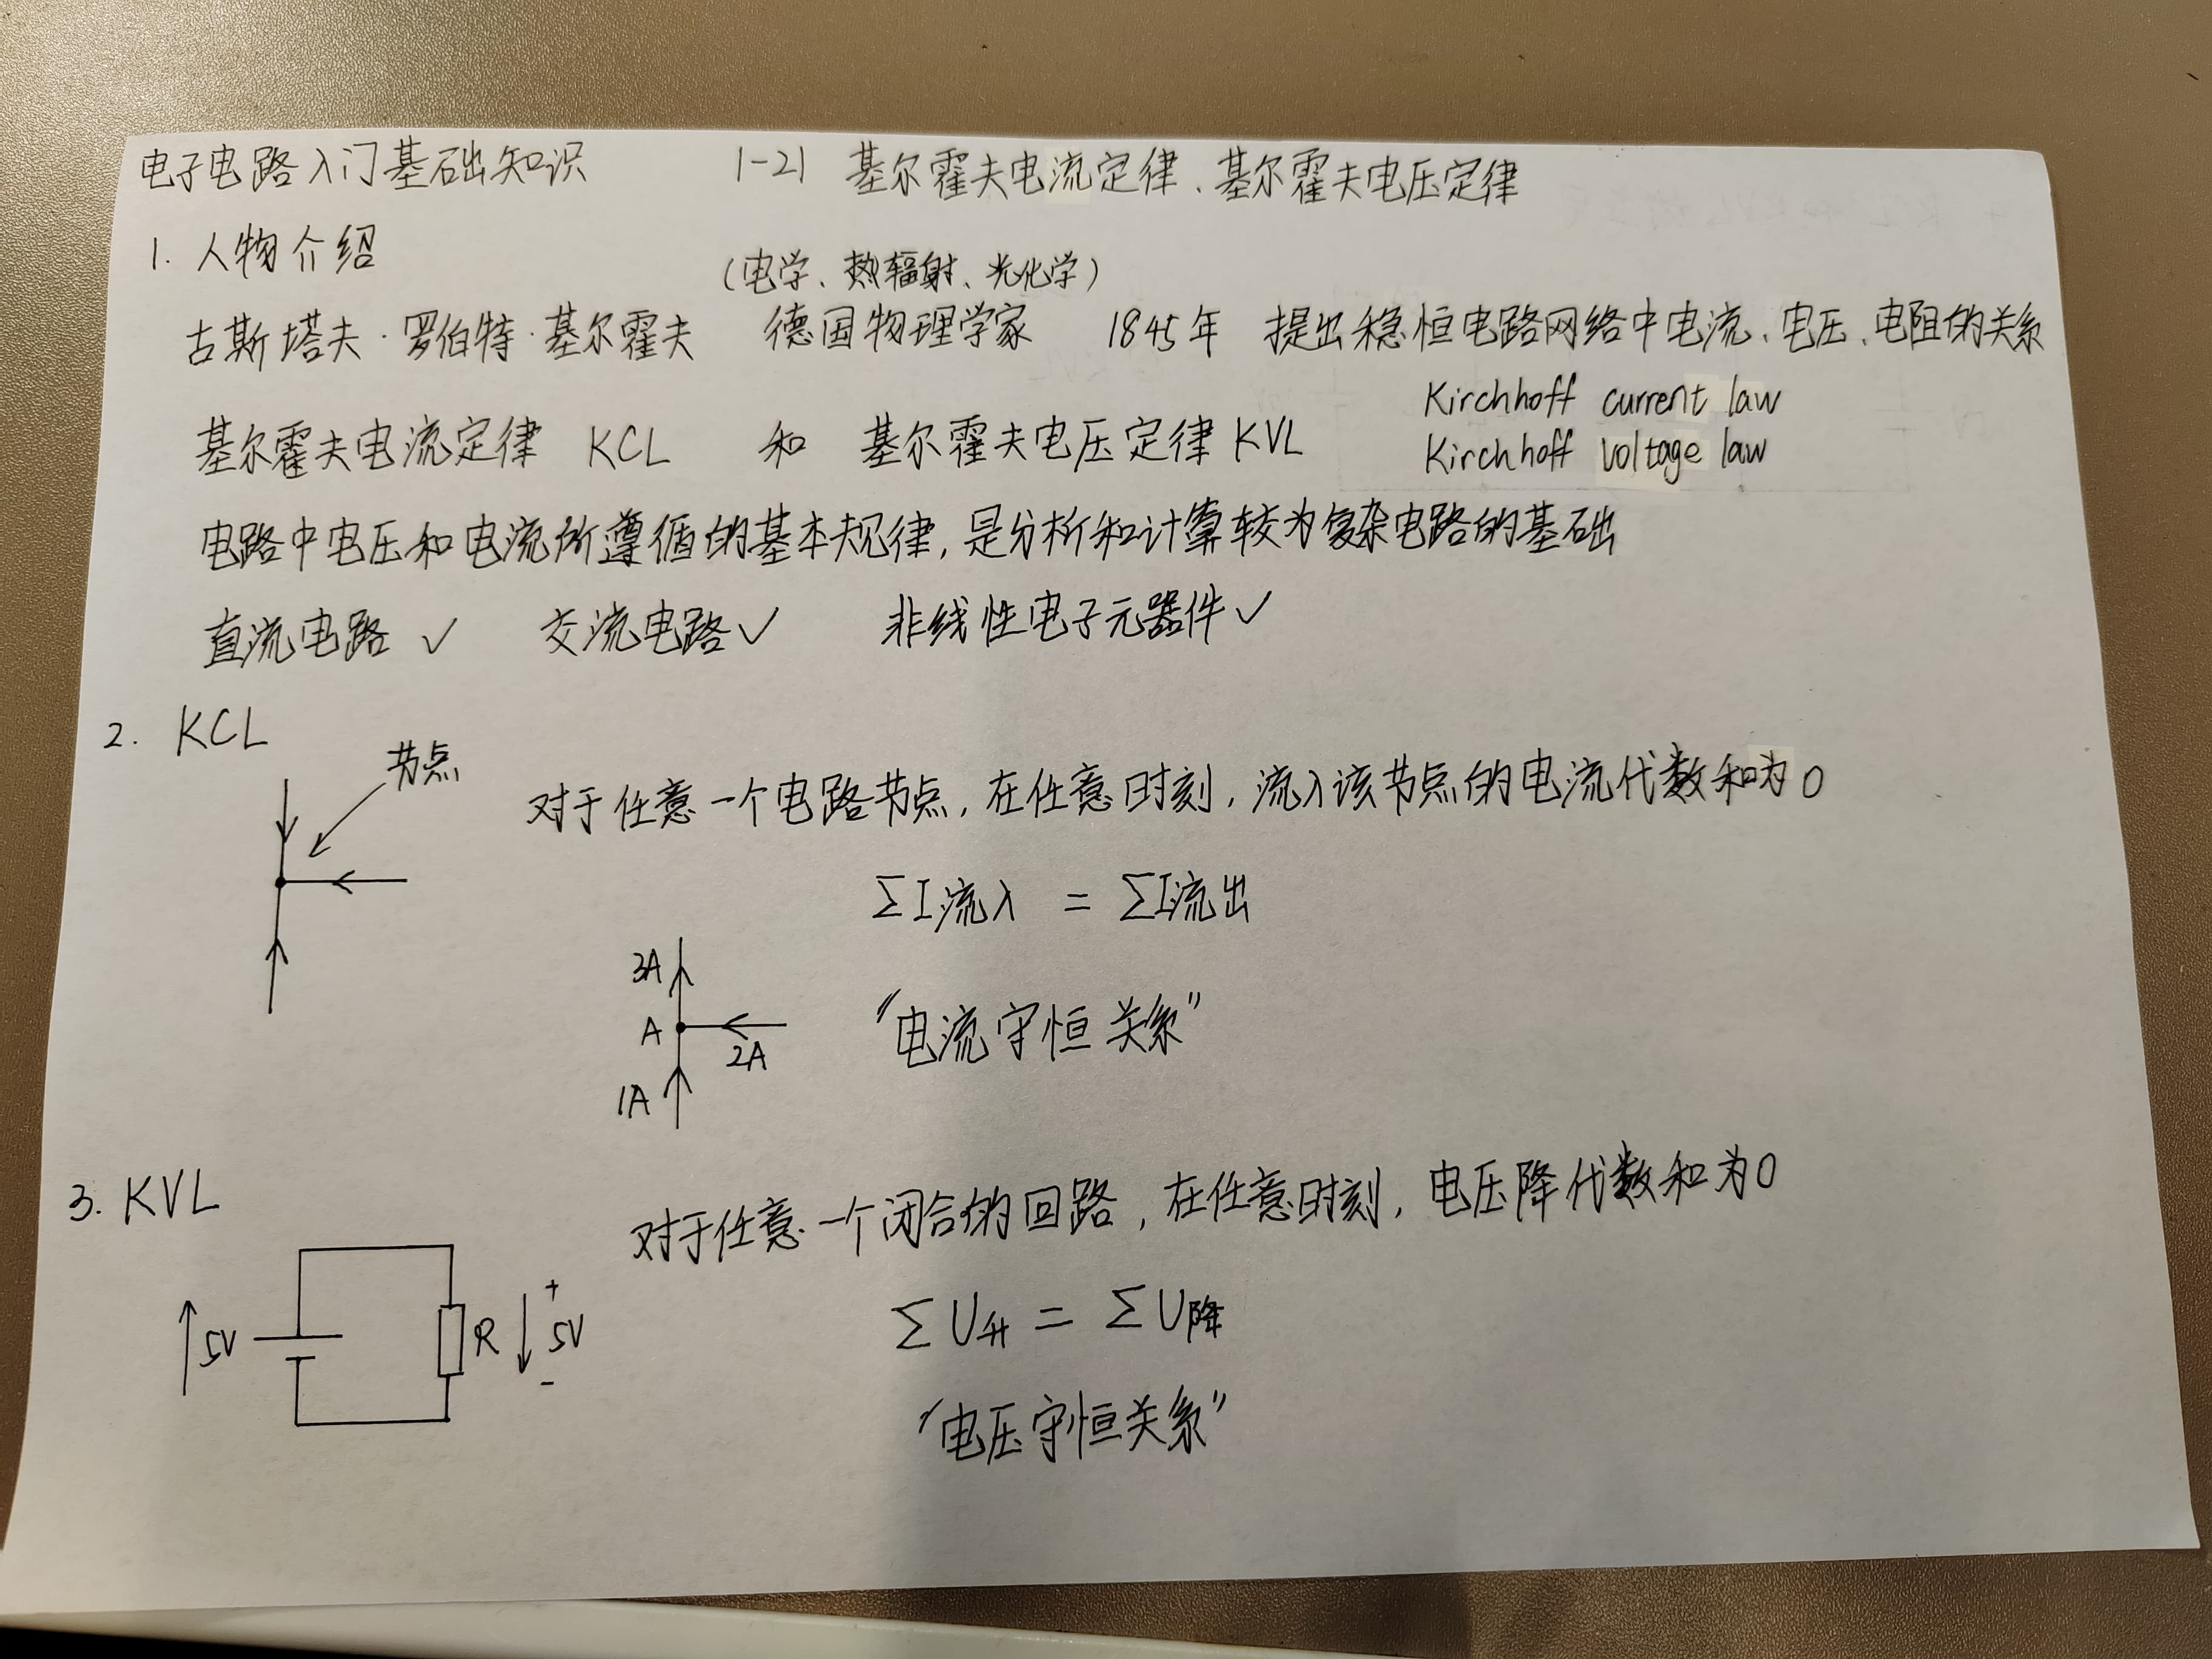 电子电路入门基础知识 1-21 基尔霍夫电流定律、基尔霍夫电压定律
1. 人物介绍
(电学、热辐射、光化学)
古斯塔夫·罗伯特·基尔霍夫 德国物理学家 1845年 提出稳恒电路网络中电流、电压、电阻的关系
Kirchhoff current law
基尔霍夫电流定律 KCL 和 基尔霍夫电压定律 KVL
Kirchhoff voltage law
电路中电压和电流所遵循的基本规律,是分析和计算较为复杂电路的基础
直流电路 ✓ 交流电路✓ 非线性电子元器件✓
2. KCL
节点
对于任意一个电路节点,在任意时刻,流入该节点的电流代数和为0
ΣI流入 = ΣI流出
3A
A
2A
1A
"电流守恒关系"
3. KVL
对于任意一个闭合的回路,在任意时刻,电压降代数和为0
5V
R
+
5V
-
ΣU升 = ΣU降
"电压守恒关系"